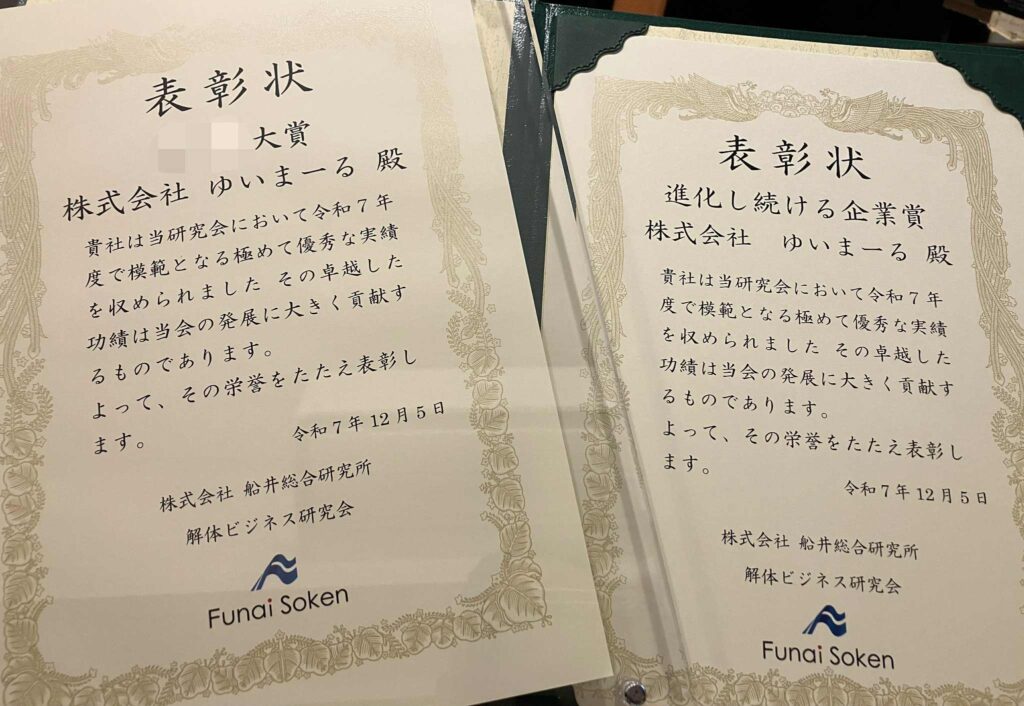 表彰状
大賞
株式会社 ゆいまーる 殿
貴社は当研究会において令和7年
度で模範となる極めて優秀な実績
を収められました その卓越した
功績は当会の発展に大きく貢献す
るものであります。
よって、その栄誉をたたえ表彰し
ます。
令和7年12月5日
株式会社 船井総合研究所
解体ビジネス研究会
Funai Soken
表彰状
進化し続ける企業賞
株式会社 ゆいまーる 殿
貴社は当研究会において令和7年
度で模範となる極めて優秀な実績
を収められました その卓越した
功績は当会の発展に大きく貢献す
るものであります。
よって、その栄誉をたたえ表彰し
ます。
令和7年12月5日
株式会社 船井総合研究所
解体ビジネス研究会
Funai Soken